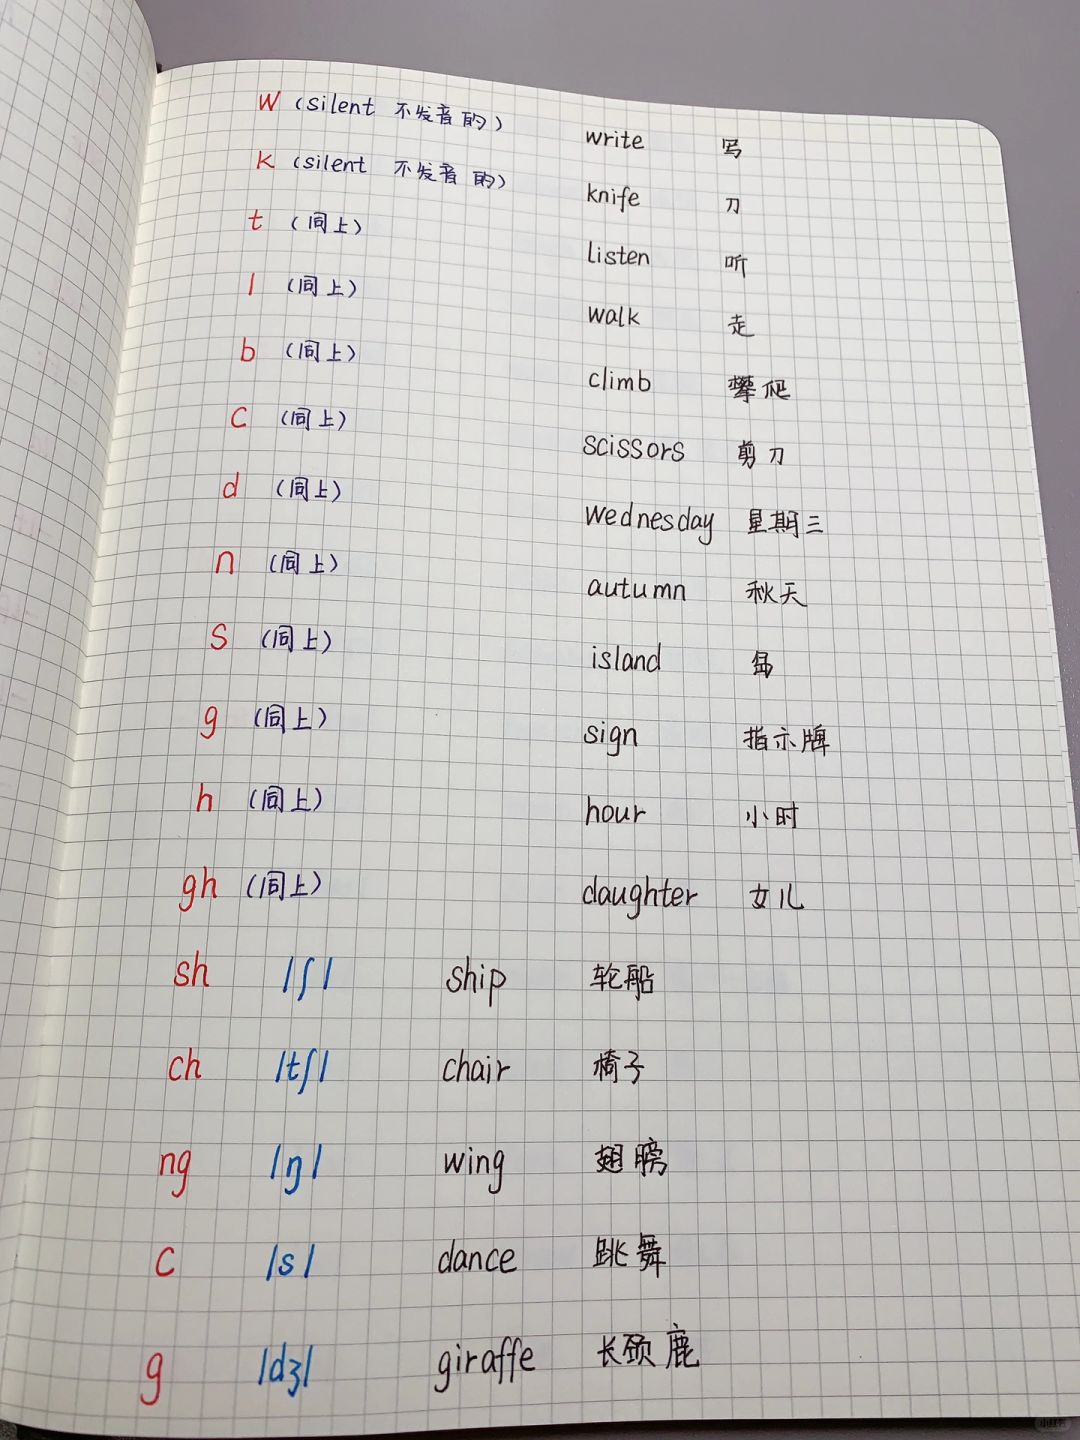 w (silent 不发音的) write 写
k (silent 不发音的) knife 刀
t (同上) listen 听
l (同上) walk 走
b (同上) climb 攀爬
c (同上) scissors 剪刀
d (同上) Wednesday 星期三
n (同上) autumn 秋天
s (同上) island 岛
g (同上) sign 指示牌
h (同上) hour 小时
gh (同上) daughter 女儿
sh /ʃ/ ship 轮船
ch /tʃ/ chair 椅子
ng /ŋ/ wing 翅膀
c /s/ dance 跳舞
g /dʒ/ giraffe 长颈鹿